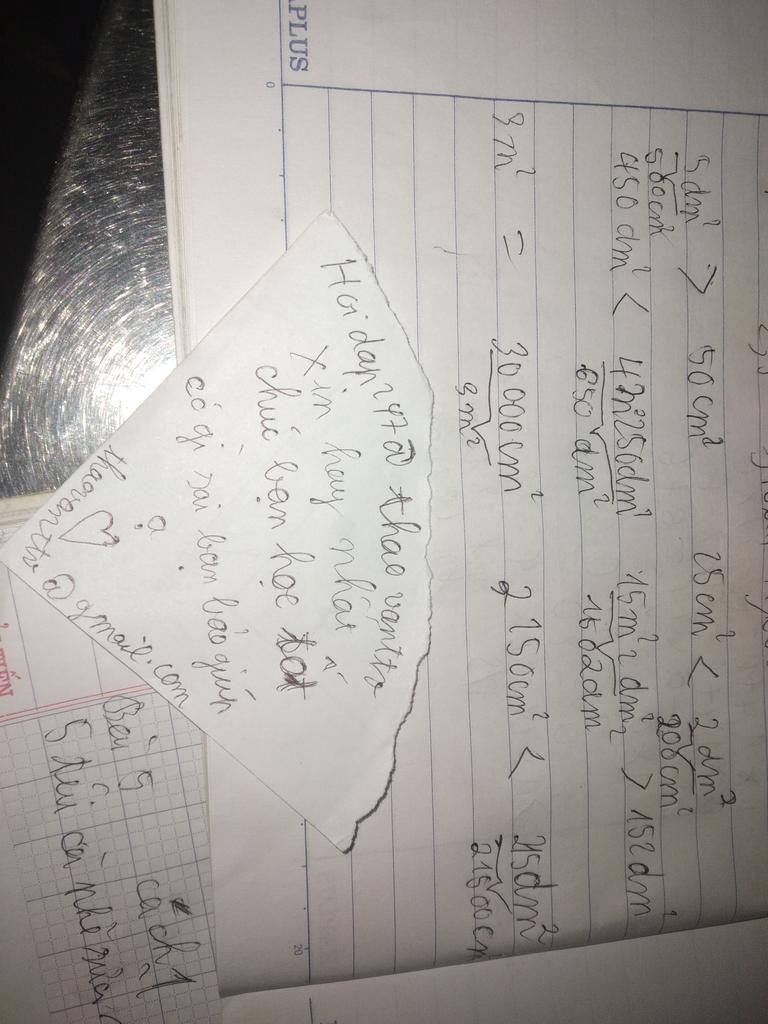 APLUS
0
5dm² > 50cm² 25cm² < 2dm²
500cm² 200cm²
450dm² < 4m²250dm² 15m²2dm² > 152dm²
650dm² 1502dm
3m² = 30000cm² 2150cm² < 215dm²
3m² 21500cm
20
Hoidap247 @ thaovanttx
Xin hay nhất
chúc bạn học tốt
có gì sai bạn báo giúp
ạ
@gmail.com
Bài 5 cách 1
5 đều cả